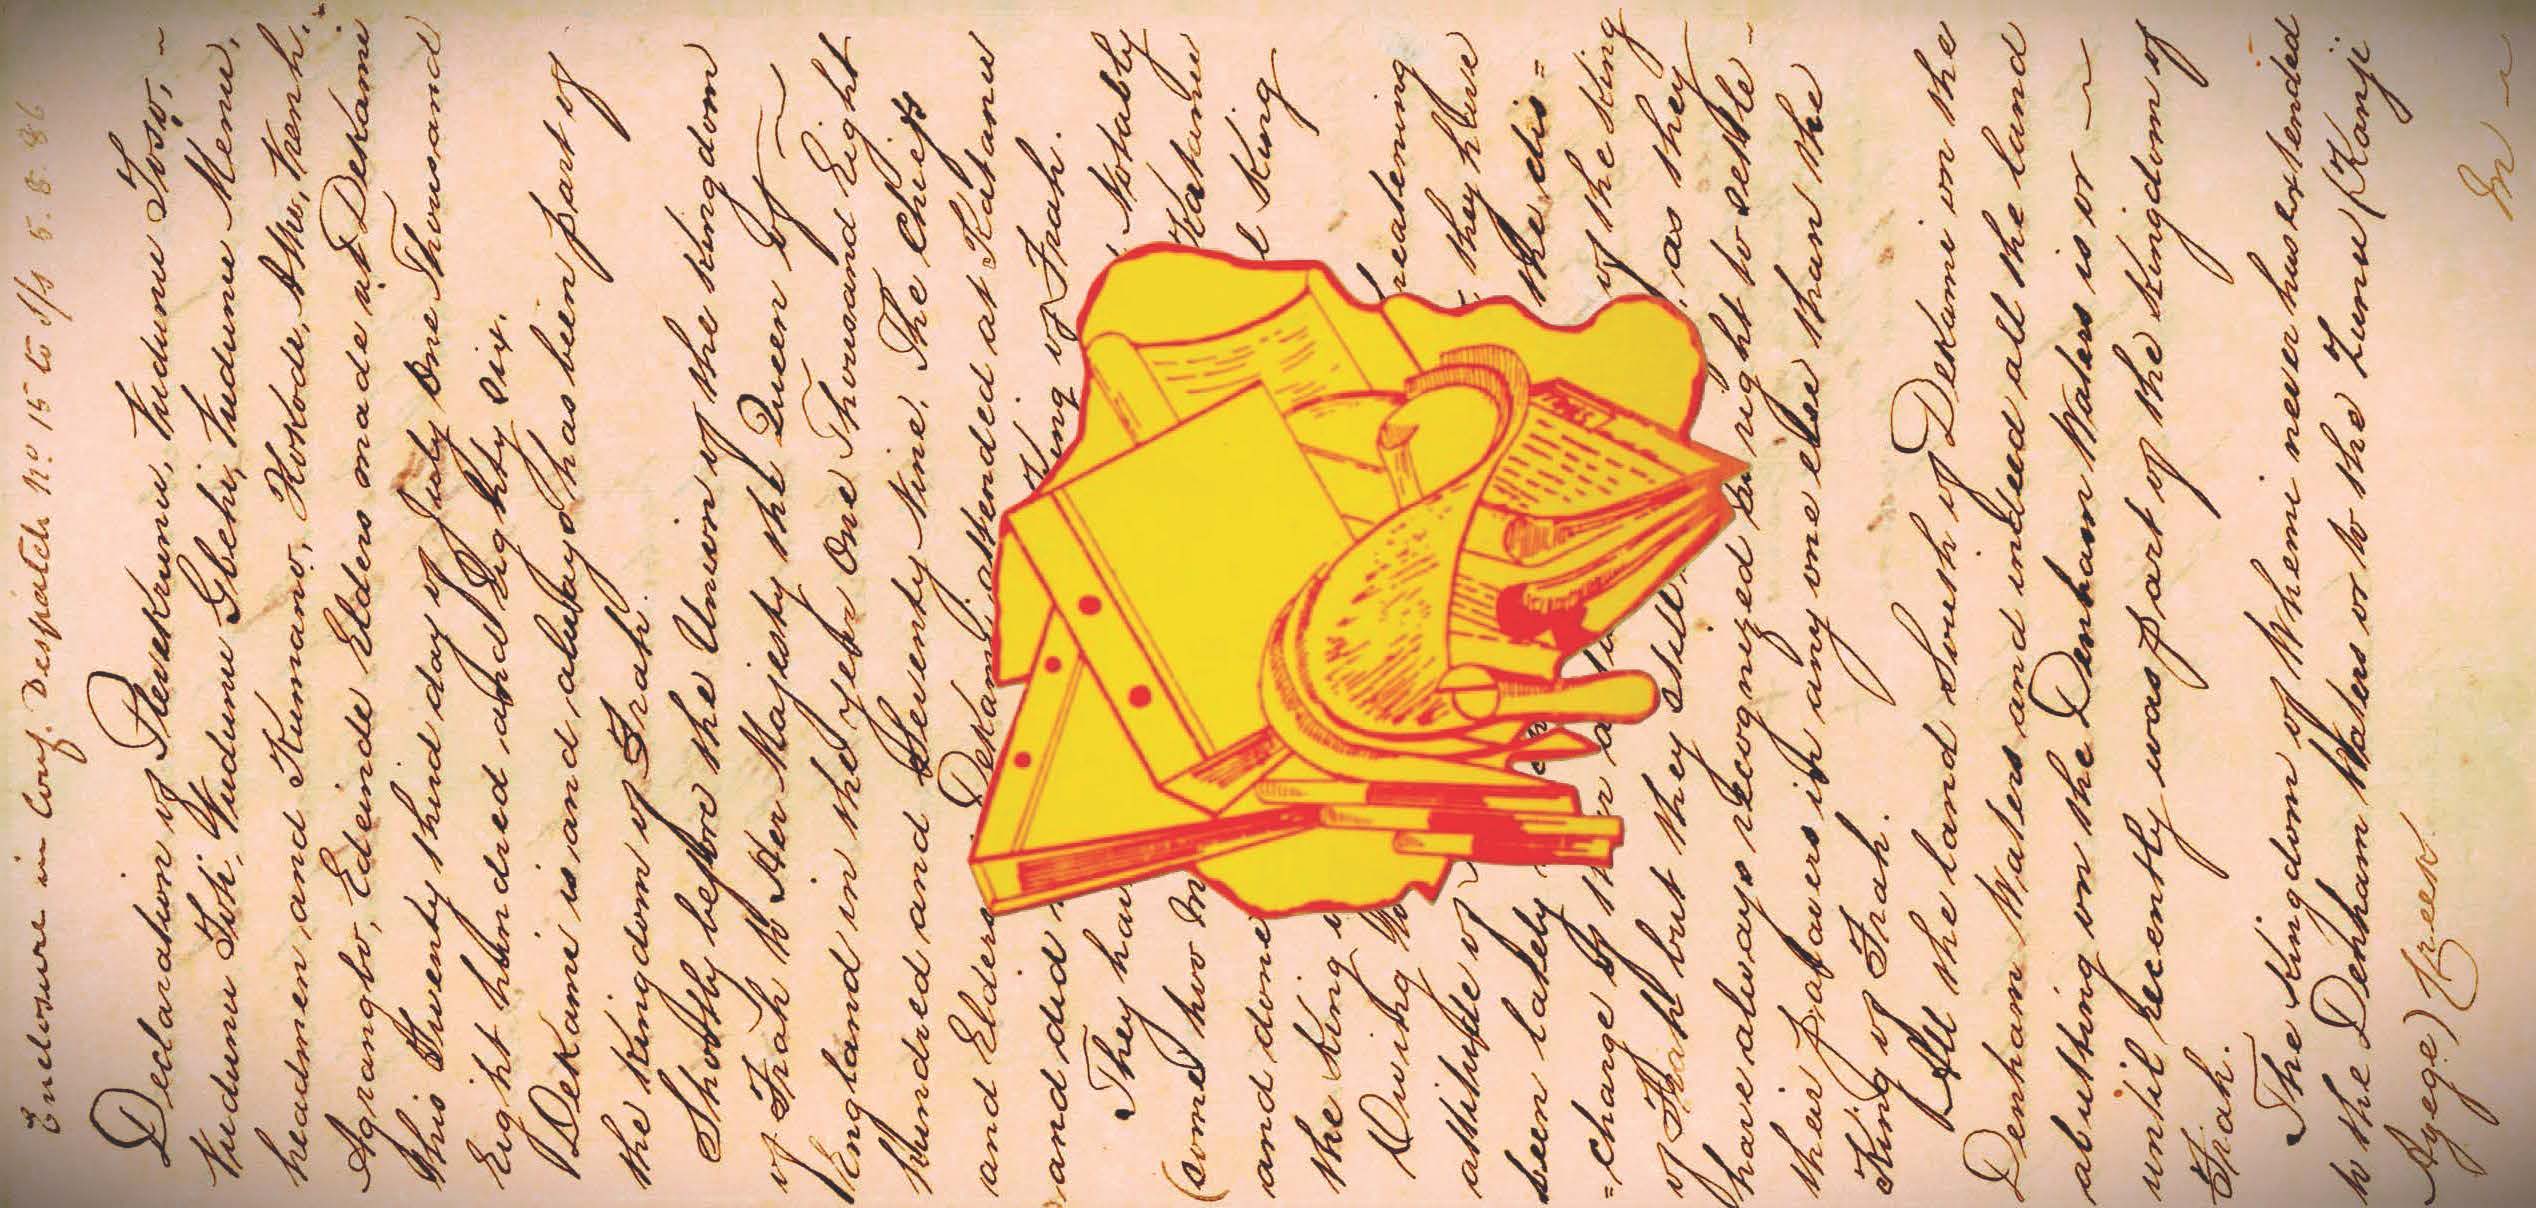 Enclosure in Conf. Despatch No 15 to S/S 5.8.86
Declaration of
headmen and Kumano, Kokode, Aho, Henh.
Agrangbo, Edeinde Elders made at Dekami
this Twenty third day of July One Thousand
Eight hundred and Eighty six.
Dekami is and always has been part of
the Kingdom of Frah.
Shortly before the Union of the Kingdom
of Frah to Her Majesty the Queen of
England in the year One Thousand Eight
hundred and Seventy Nine. The Chiefs
and Elders Dekami attended at Katanu
and did King of Frah.
They hav Notably
(some two m Katanu
and done l King
the King reatening
Owing to they have
attitude of the dis=
been lately of the King
=charge of as they
of Frah but they still right to settle
have always recognized
their palavers in any one else than the
King of Frah.
All the land South of Dekami on the
Denham Waters and indeed all the land
abutting on the Denham Waters is or
until recently was part of the Kingdom of
Frah.
The Kingdom of Whemi never has extended
to the Denham Waters or to the Zumu (Kanji
Ayege) Creek.